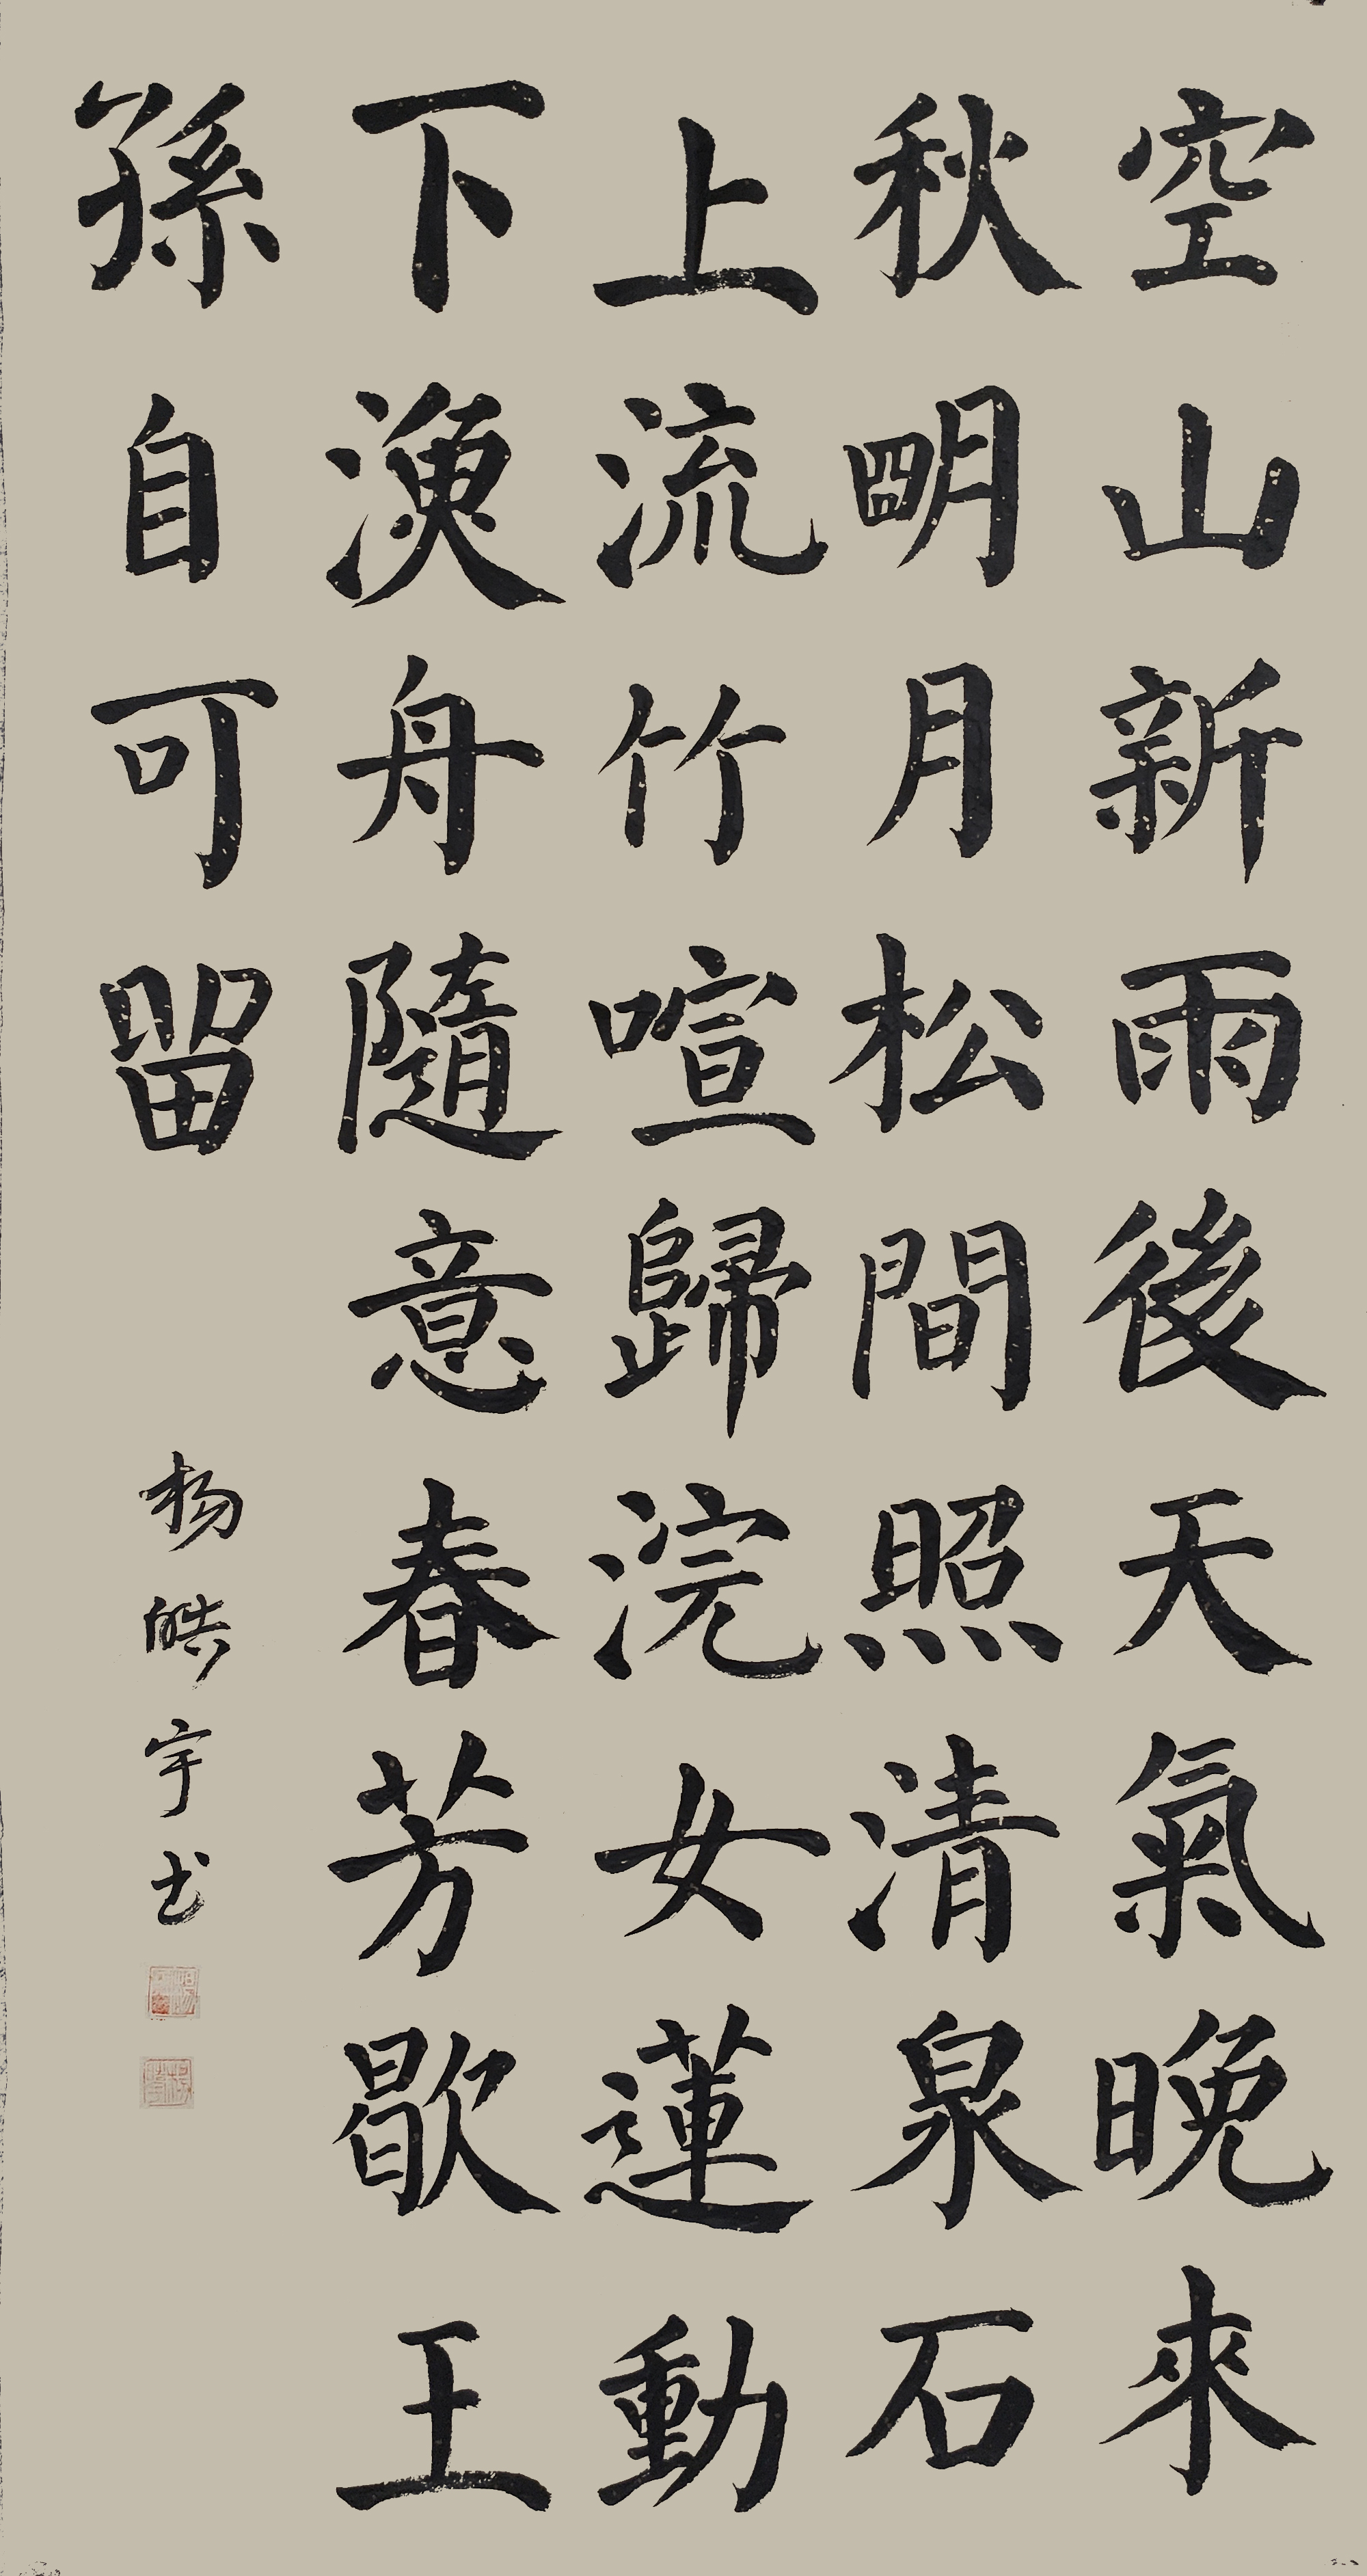 空山新雨後天氣晚來
秋明月松間照清泉石
上流竹喧歸浣女蓮動
下漁舟隨意春芳歇王
孫自可留
杨皓宇书